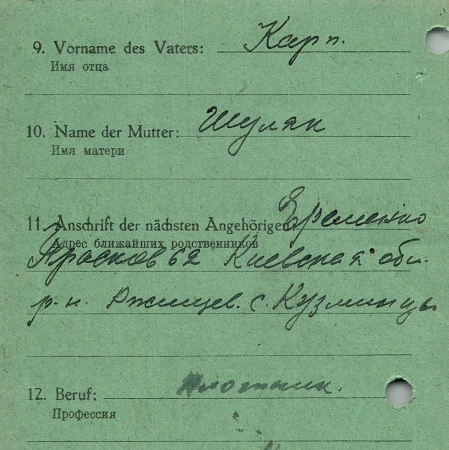 9. Vorname des Vaters: Карп.
Имя отца
10. Name der Mutter: Шуляк
Имя матери
11. Anschrift der nächsten Angehörigen Еременко
Адрес ближайших родственников
62 Киевская обл.
р. н. Ржищев. с. Кузминцы
12. Beruf: Плотник.
Профессия